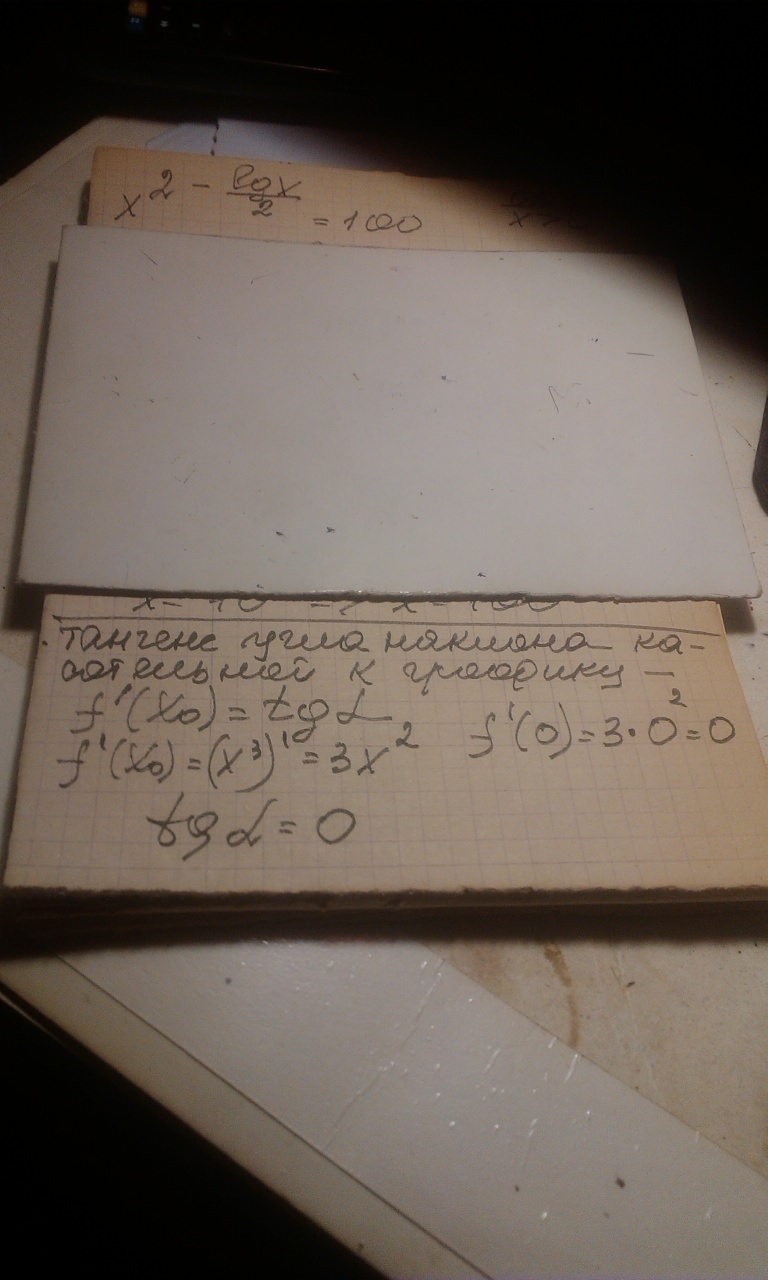 x^2 - lgx/2 = 100
x = 10 => x = 100
тангенс угла наклона ка-
сательной к графику —
f'(x₀) = tg α
f'(x₀) = (x³)' = 3x² f'(0) = 3·0² = 0
tg α = 0